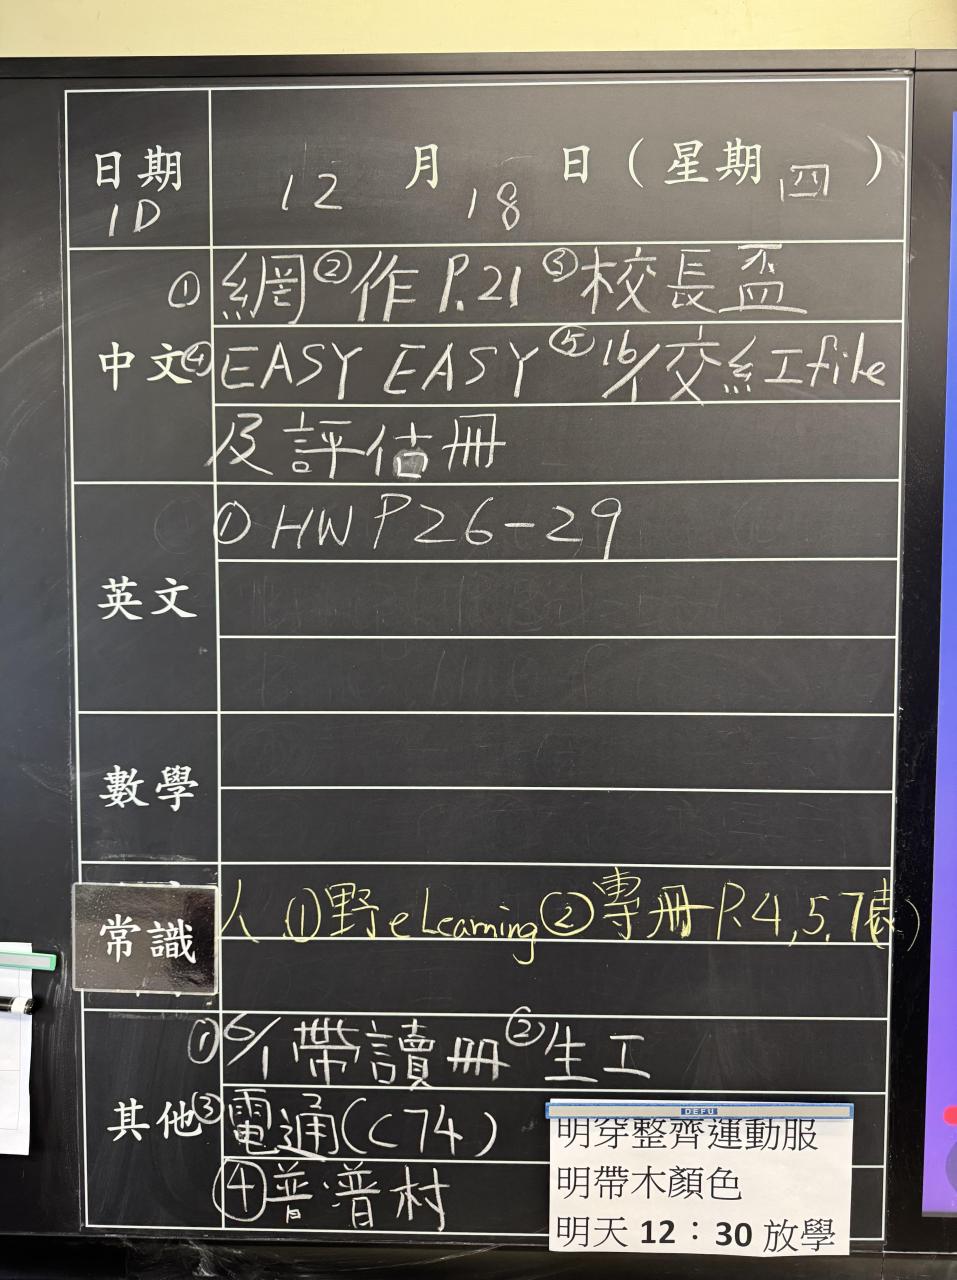 日期 12月18日(星期四)
1D
①網②作P.21③校長盃
中文④EASY EASY⑤16/1交紅工file
及評估冊
①HW P26-29
英文
數學
人①野eLearning②專冊P.4,5,7
常識
①6/1帶讀冊②生工
其他③電通(C74)
④普普村
DEFU
明穿整齊運動服
明帶木顏色
明天12:30放學